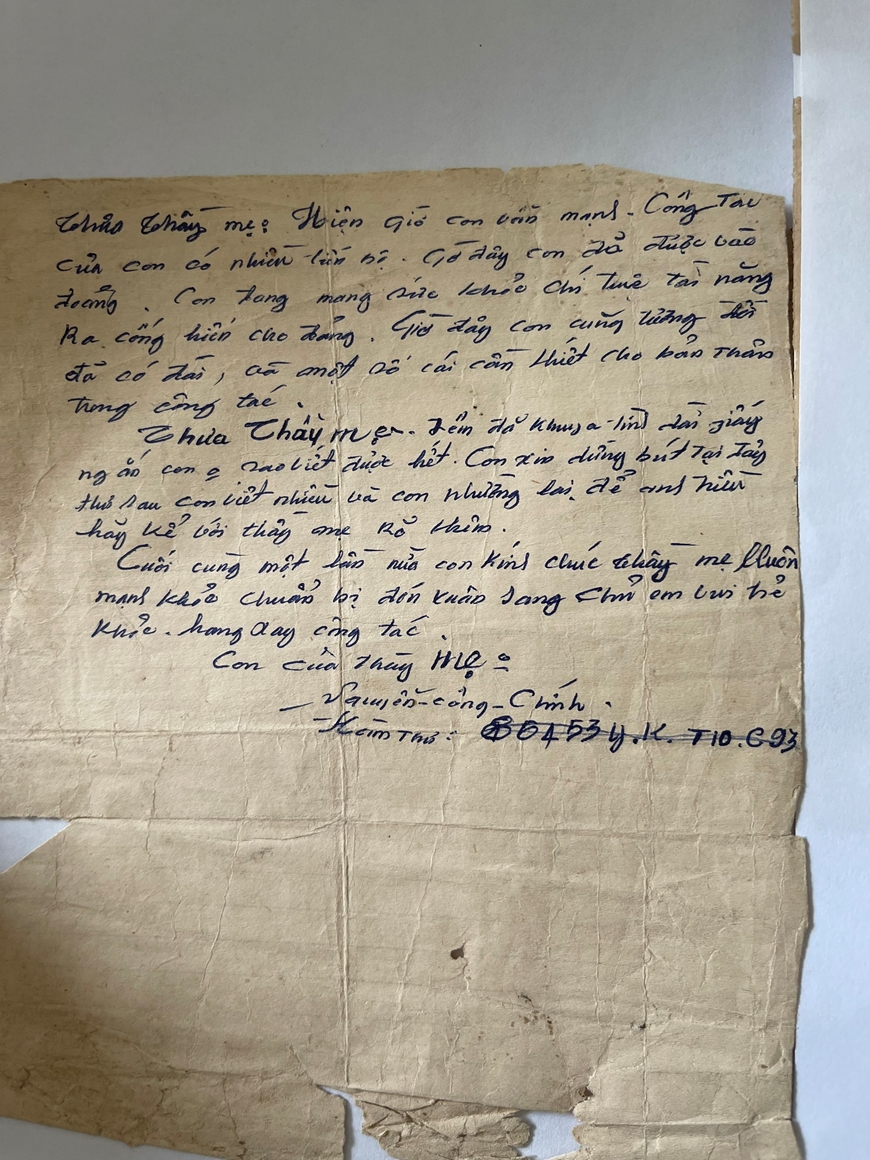 Thưa thầy mẹ: Hiện giờ con vẫn mạnh - Công Tác
của con có nhiều tiến bộ. Giờ đây con đã được vào
đoảng. Con đang mang sức khỏe chí tuệ tài năng
Ra cống hiến cho đảng. Giờ đây con cũng tương đối
đã có đài, và một số cái cần thiết cho bản thân
trong công tác.
Thưa Thầy mẹ - Đêm đã khuya lính dài giấy
ngắn con sao viết được hết. Con xin dừng bút tại đây
thư sau con viết nhiều và con nhường lại để anh hiền
hãy kể với thầy mẹ Rõ thêm.
Cuối cùng một lần nữa con kính chúc thầy mẹ luôn
mạnh khỏe chuẩn bị đón xuân sang em vui vẻ
khỏe. hang say công tác.
Con của thầy mẹ:
- Nguyễn - công - Chính.
- Hòm Thư: 86453 Y.K. T10.C93